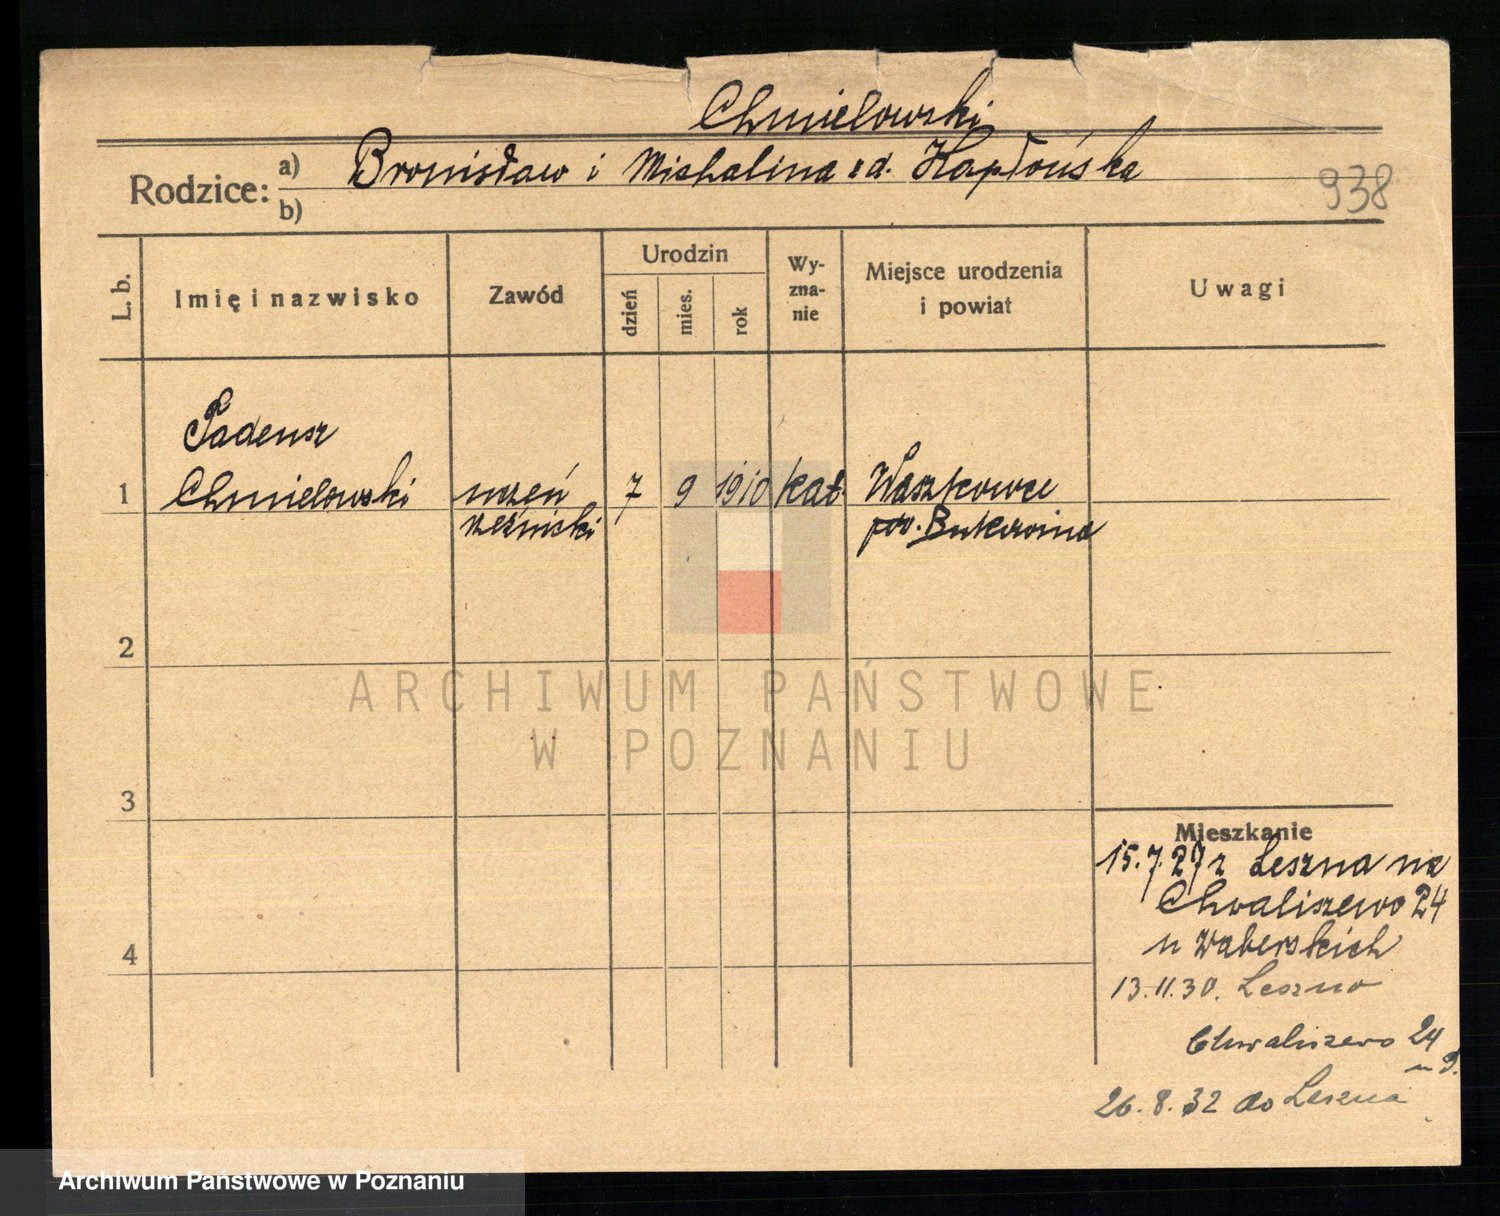 Chmielowski
Rodzice: a) Bronisław i Michalina z d. Kapłońska
b)
938
L. b.
Imię i nazwisko
Zawód
Urodzin
dzień
mies.
rok
Wy-
zna-
nie
Miejsce urodzenia
i powiat
Uwagi
Tadeusz
1 Chmielowski uczeń 7 9 1910 kat. Waszkowce
rzeźnicki pow. Bukowina
2
ARCHIWUM PAŃSTWOWE
W POZNANIU
3
Mieszkanie
15.7.27 z Leszna na
Chwaliszewo 24
u Waberskich
4
13.11.30. Leszno
Chwaliszewo 24
26.8.32 do Leszna
Archiwum Państwowe w Poznaniu